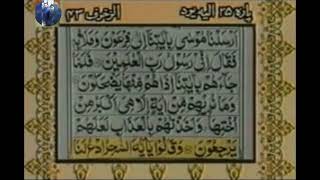 پارہ ۲۵ الیہ یرد
الزخرف ۴۳
اَرْسَلْنَا مُوْسٰى بِاٰيٰتِنَآ اِلٰى فِرْعَوْنَ وَمَلَا۟ئِهٖ
فَقَالَ اِنِّىْ رَسُوْلُ رَبِّ الْعٰلَمِيْنَ فَلَمَّا
جَآءَهُمْ بِاٰيٰتِنَآ اِذَا هُمْ مِّنْهَا يَضْحَكُوْنَ
وَمَا نُرِيْهِمْ مِّنْ اٰيَةٍ اِلَّا هِىَ اَكْبَرُ مِنْ
اُخْتِهَا وَاَخَذْنٰهُمْ بِالْعَذَابِ لَعَلَّهُمْ
يَرْجِعُوْنَ وَقَالُوْا يٰٓاَيُّهَ السَّاحِرُ ادْعُ لَنَا